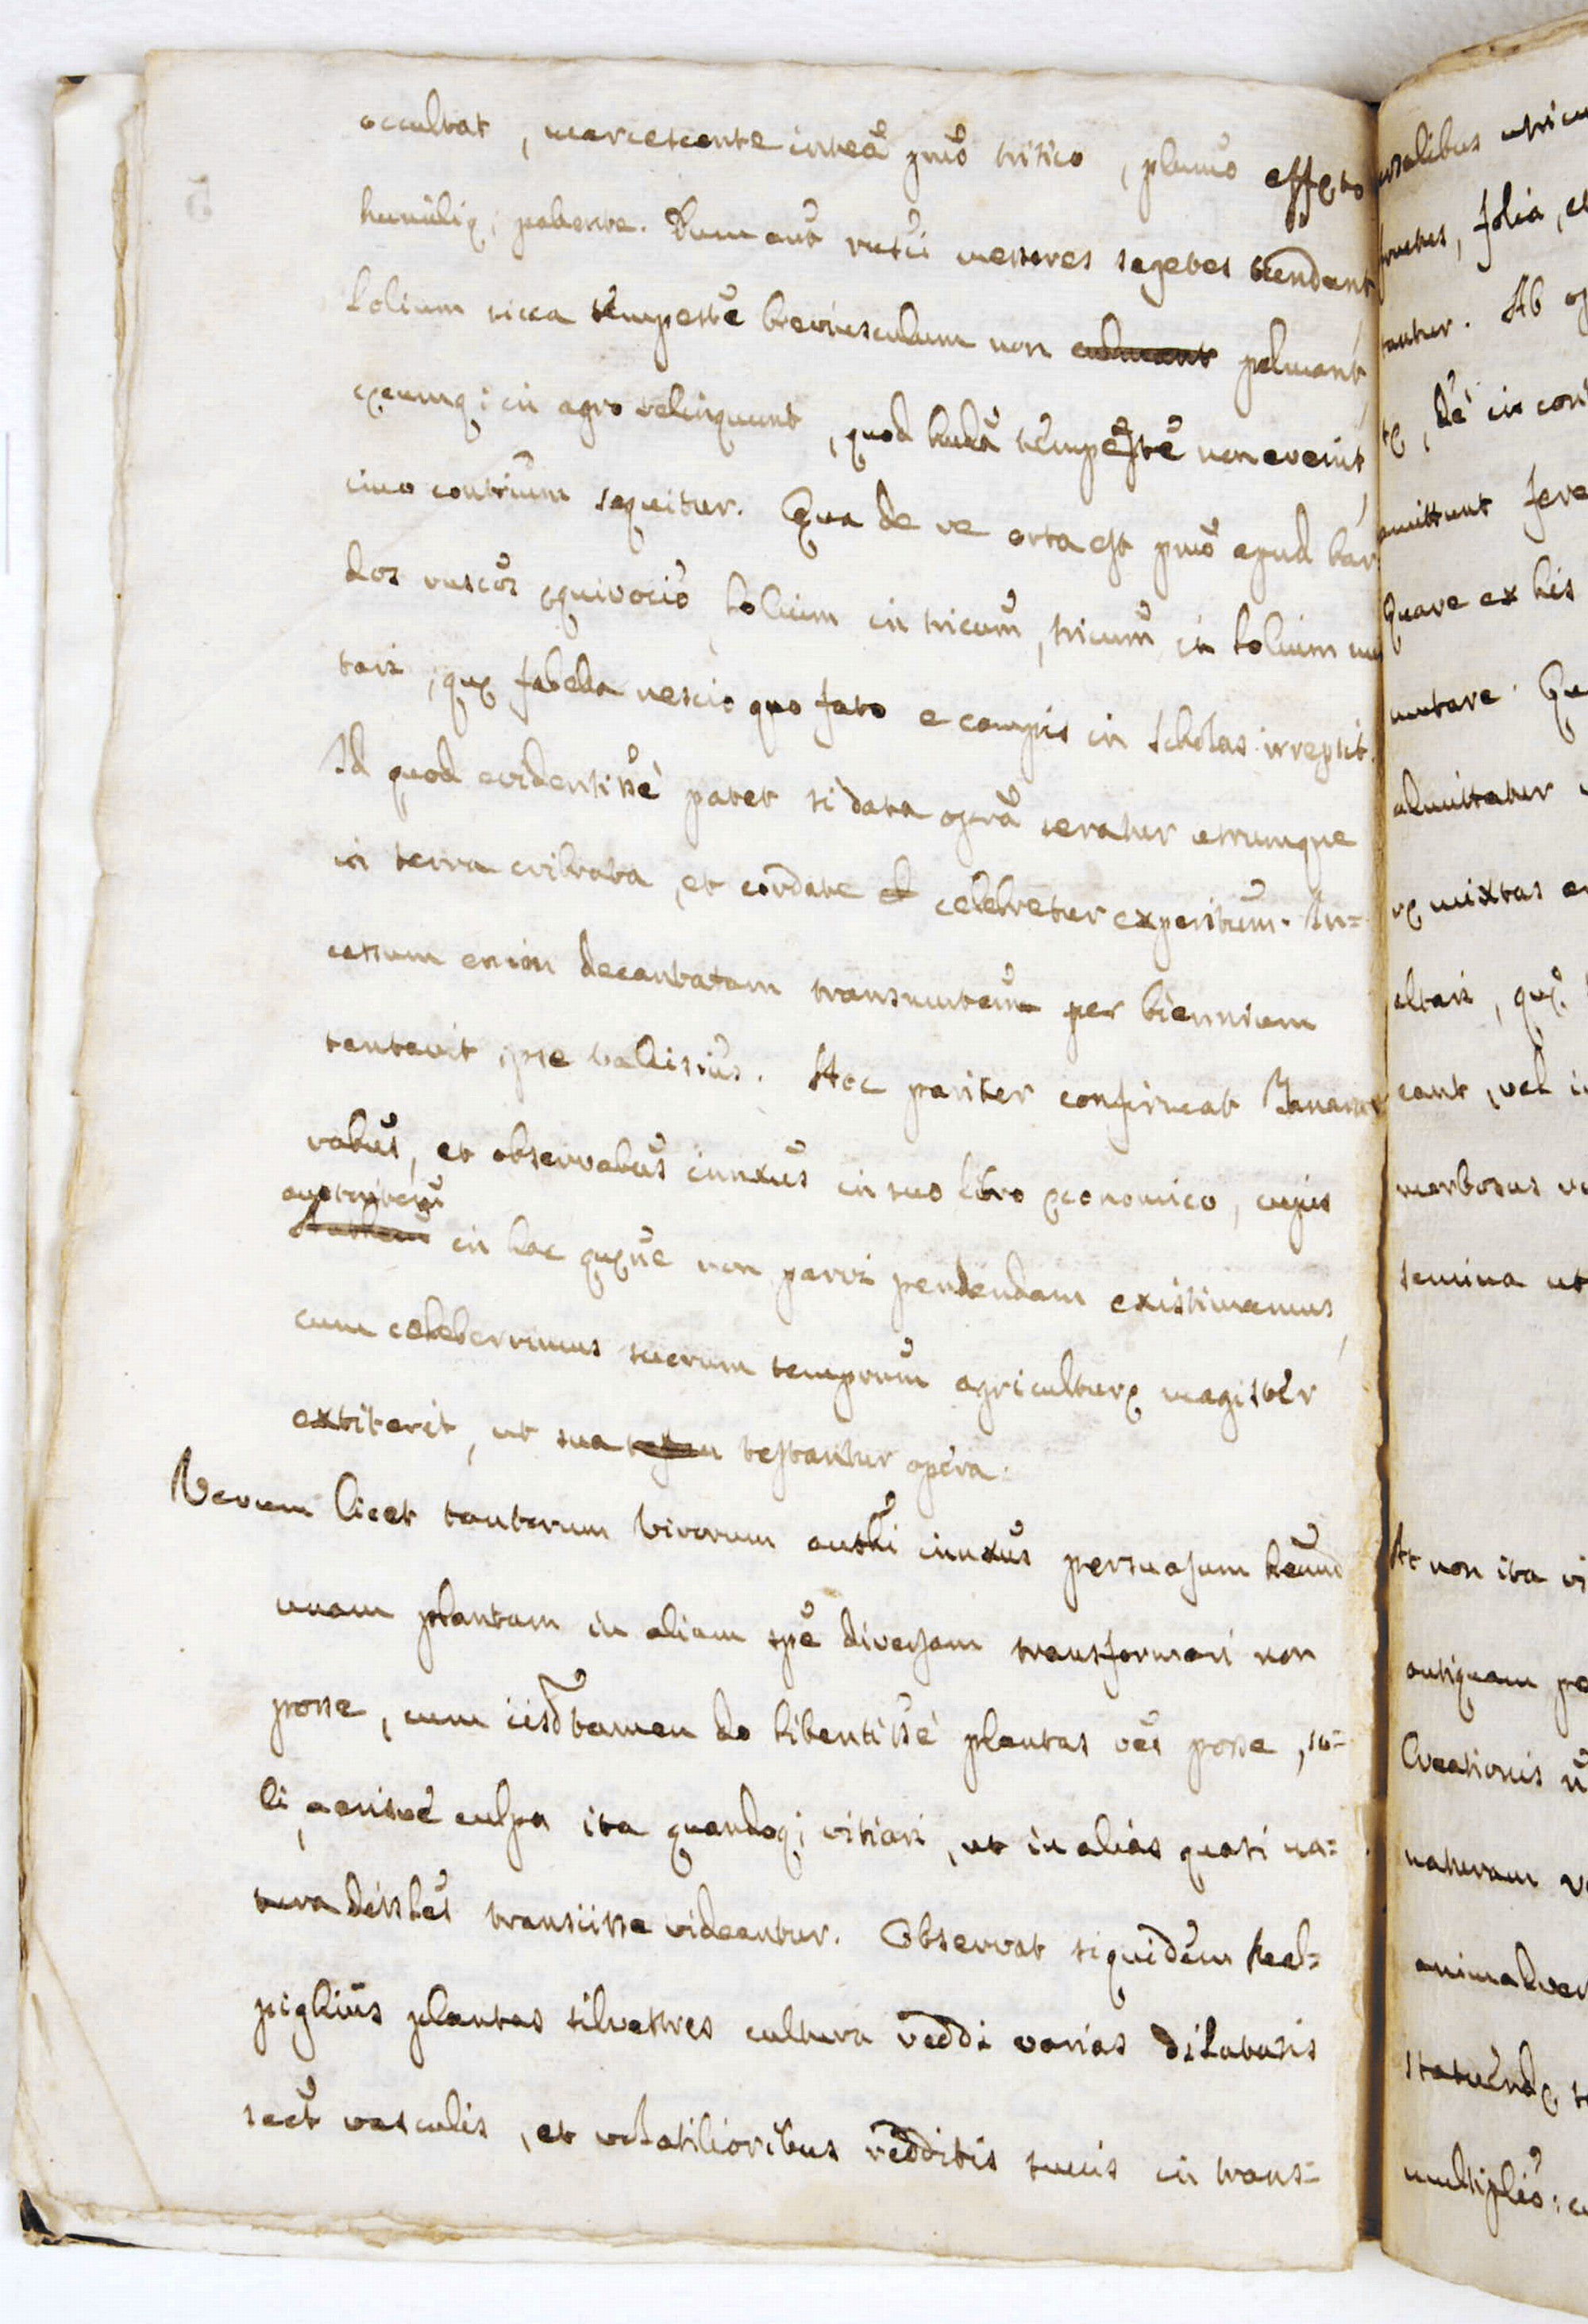 occultat, marcescente intea pmo tritico, plurimo effeto
humiliq; patente. Dum aut rusci messores segetes tendunt
Lolium sicca tempeste breviusculum non palmant
eumq; in agro relinquunt, quod huda tempeste non evenit,
imo contrium sequitur. Qua de re orta est pmo apud bar
dos ruscos equivocio Lolium in tricum, tricum in Lolium mu
tari, quę fabella nescio quo fato e campis in scholas irrepsit.
Id quod evidentissè patet si data opra seratur utrumque
in terra cribrata, et cordate celebretur experitum. In=
cassum enim decantatam transmutem per biennium
tentavit ipse Vallisrius. Hoc pariter confirmat Zanara
rabus, et observabus innxus in suo libro ęconomico, cujus
in hac quęne non parvi pendendam existimamus,
cum celeberrimus suorum temprum agriculturę magister
extiterit, ut sua testantur opera.
Verum licet tantorum Virorum authi innxus persuasum heam
unam plantam in aliam spe diversam transformari non
posse, cum iisd tamen do libentissè plantas res posse, so=
li, aerisvè culpa ita quandoq; vitiari, ut in alias quasi na=
tura dissles transiisse videantur. Observat siquidem Mal=
pighius plantas silvestres cultura reddi varias dilatatis
sect vasculis, et volatilioribus redditis succis in trans=
rsalibus utricu
fructus, folia, et
tantur. Ab
tę, dè in con
amittunt fere
Quare ex his
mutare. Qu
admittatur
rę mixtas
altari, quę
cant, vel i
morbosus
semina ut
At non ita vi
antiquam po
Creationis
naturam
animalver
statuendę
multiplio: